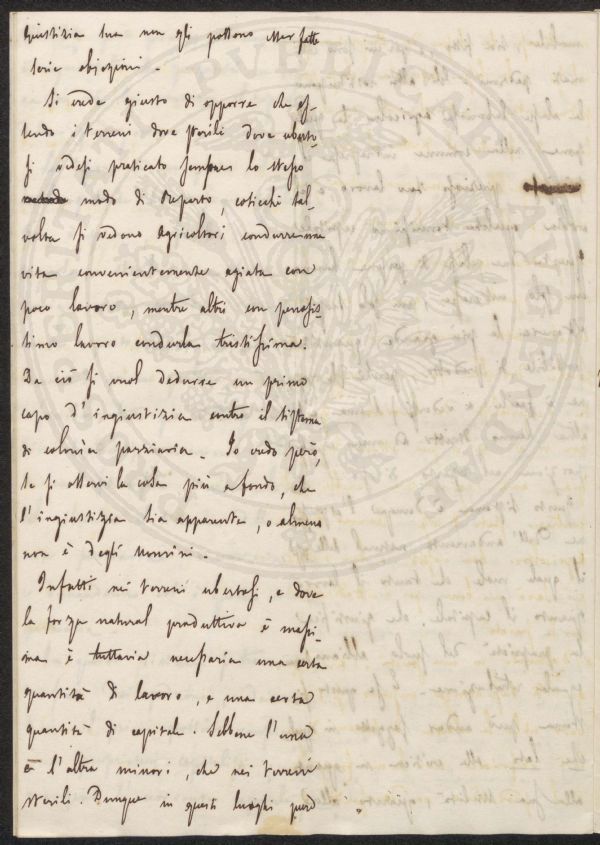 giustizia sua non gli possono esser fatte
serie obiezioni.
Si crede giusto di opporre che es-
sendo i terreni dove sterili dove uberto-
si vedesi praticato sempre lo stesso
modo di reparto, cosicchè tal-
volta si vedono agricoltori condurre una
vita convenientemente agiata con
poco lavoro, mentre altri con penosis-
simo lavoro condurla tristissima.
Da ciò si vuol dedurre un primo
capo d'ingiustizia contro il sistema
di colonìa parziaria. Io credo però,
se si osservi la cosa più a fondo, che
l'ingiustizia sia apparente, o almeno
non è degli uomini.
Infatti nei terreni ubertosi, e dove
la forza natural produttiva è massi-
ma è tuttavia necessaria una certa
quantità di lavoro, e una certa
quantità di capitale. Sebbene l'una
e l'altra minori, che nei terreni
sterili. Dunque in questi luoghi però